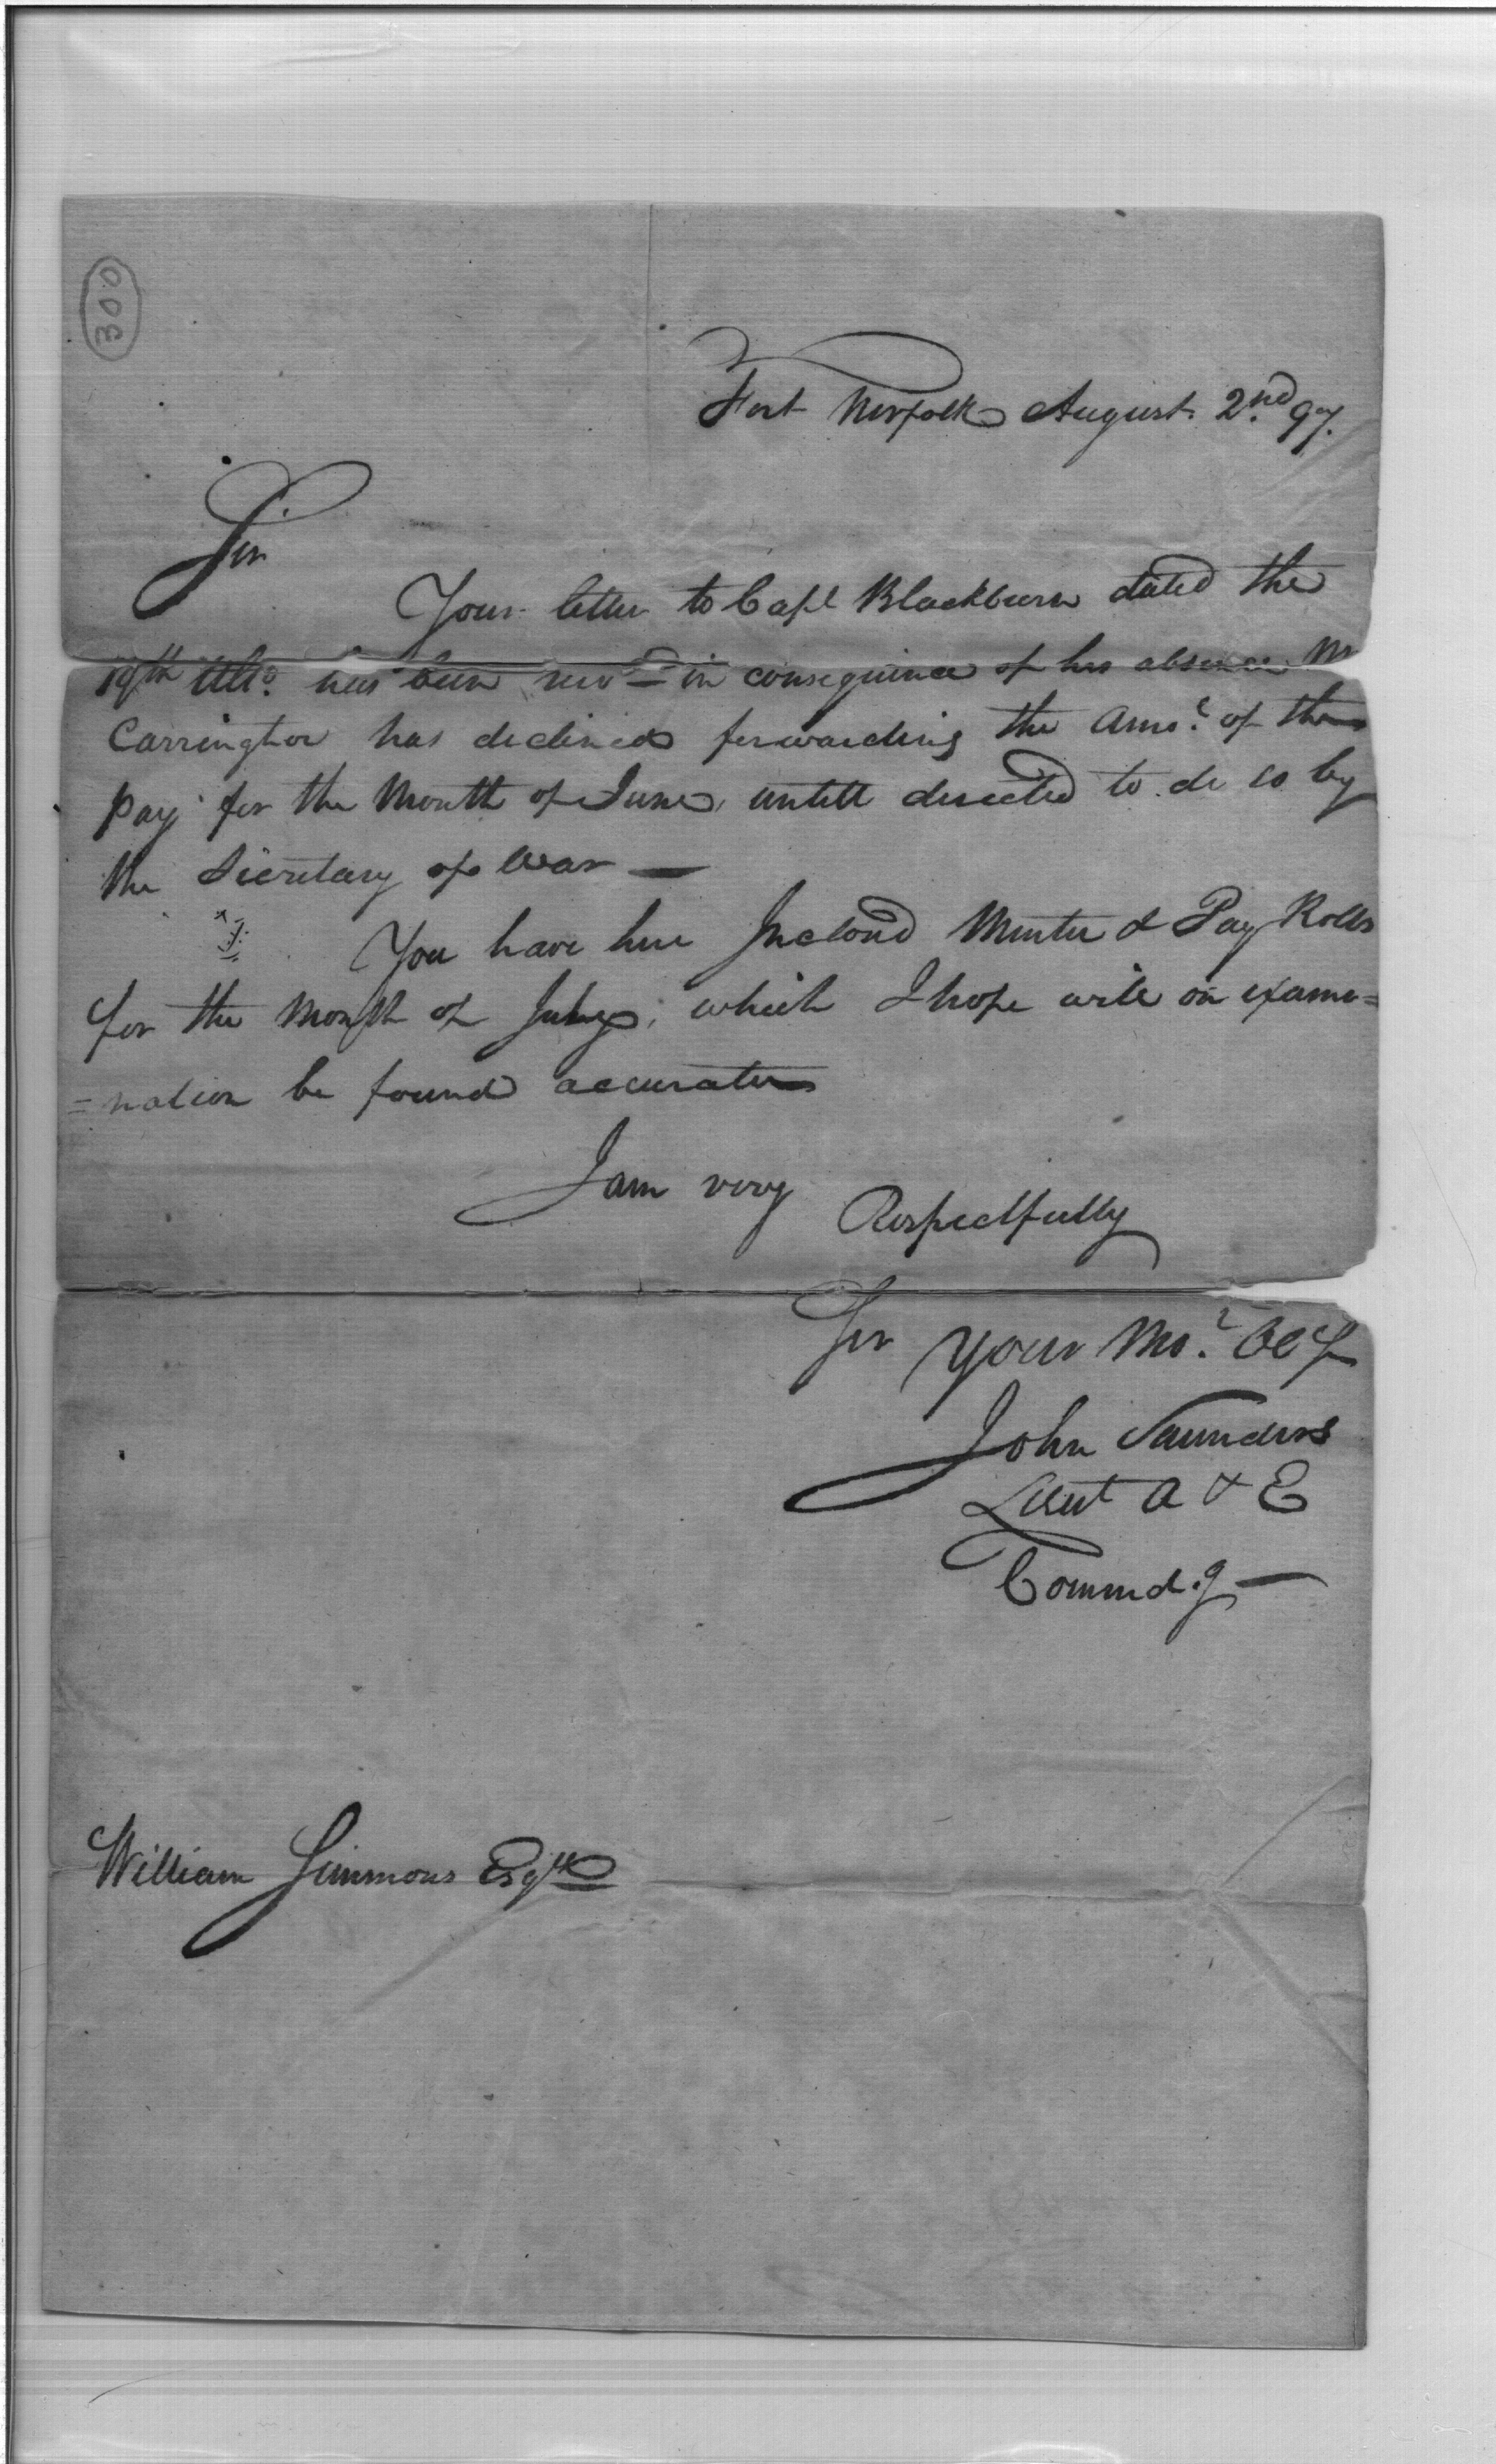 300
Fort Norfolk August 2nd 97.
Sir
Your letter to Capt Blackburn dated the
19th Ulto. has been recd in consequence of his absence Mr
Carrington has declined forwarding the Amot. of the
pay for the Month of June, untill directed to do so by
the Secretary of War —
You have here Inclosd Muster & Pay Rolls
for the Month of July, which I hope will on exami=
=nation be found accurate
I am very Respectfully
Sir your Mot. Obt
John Saunders
Lieut A & E
Commdg —
William Simmons Esqr